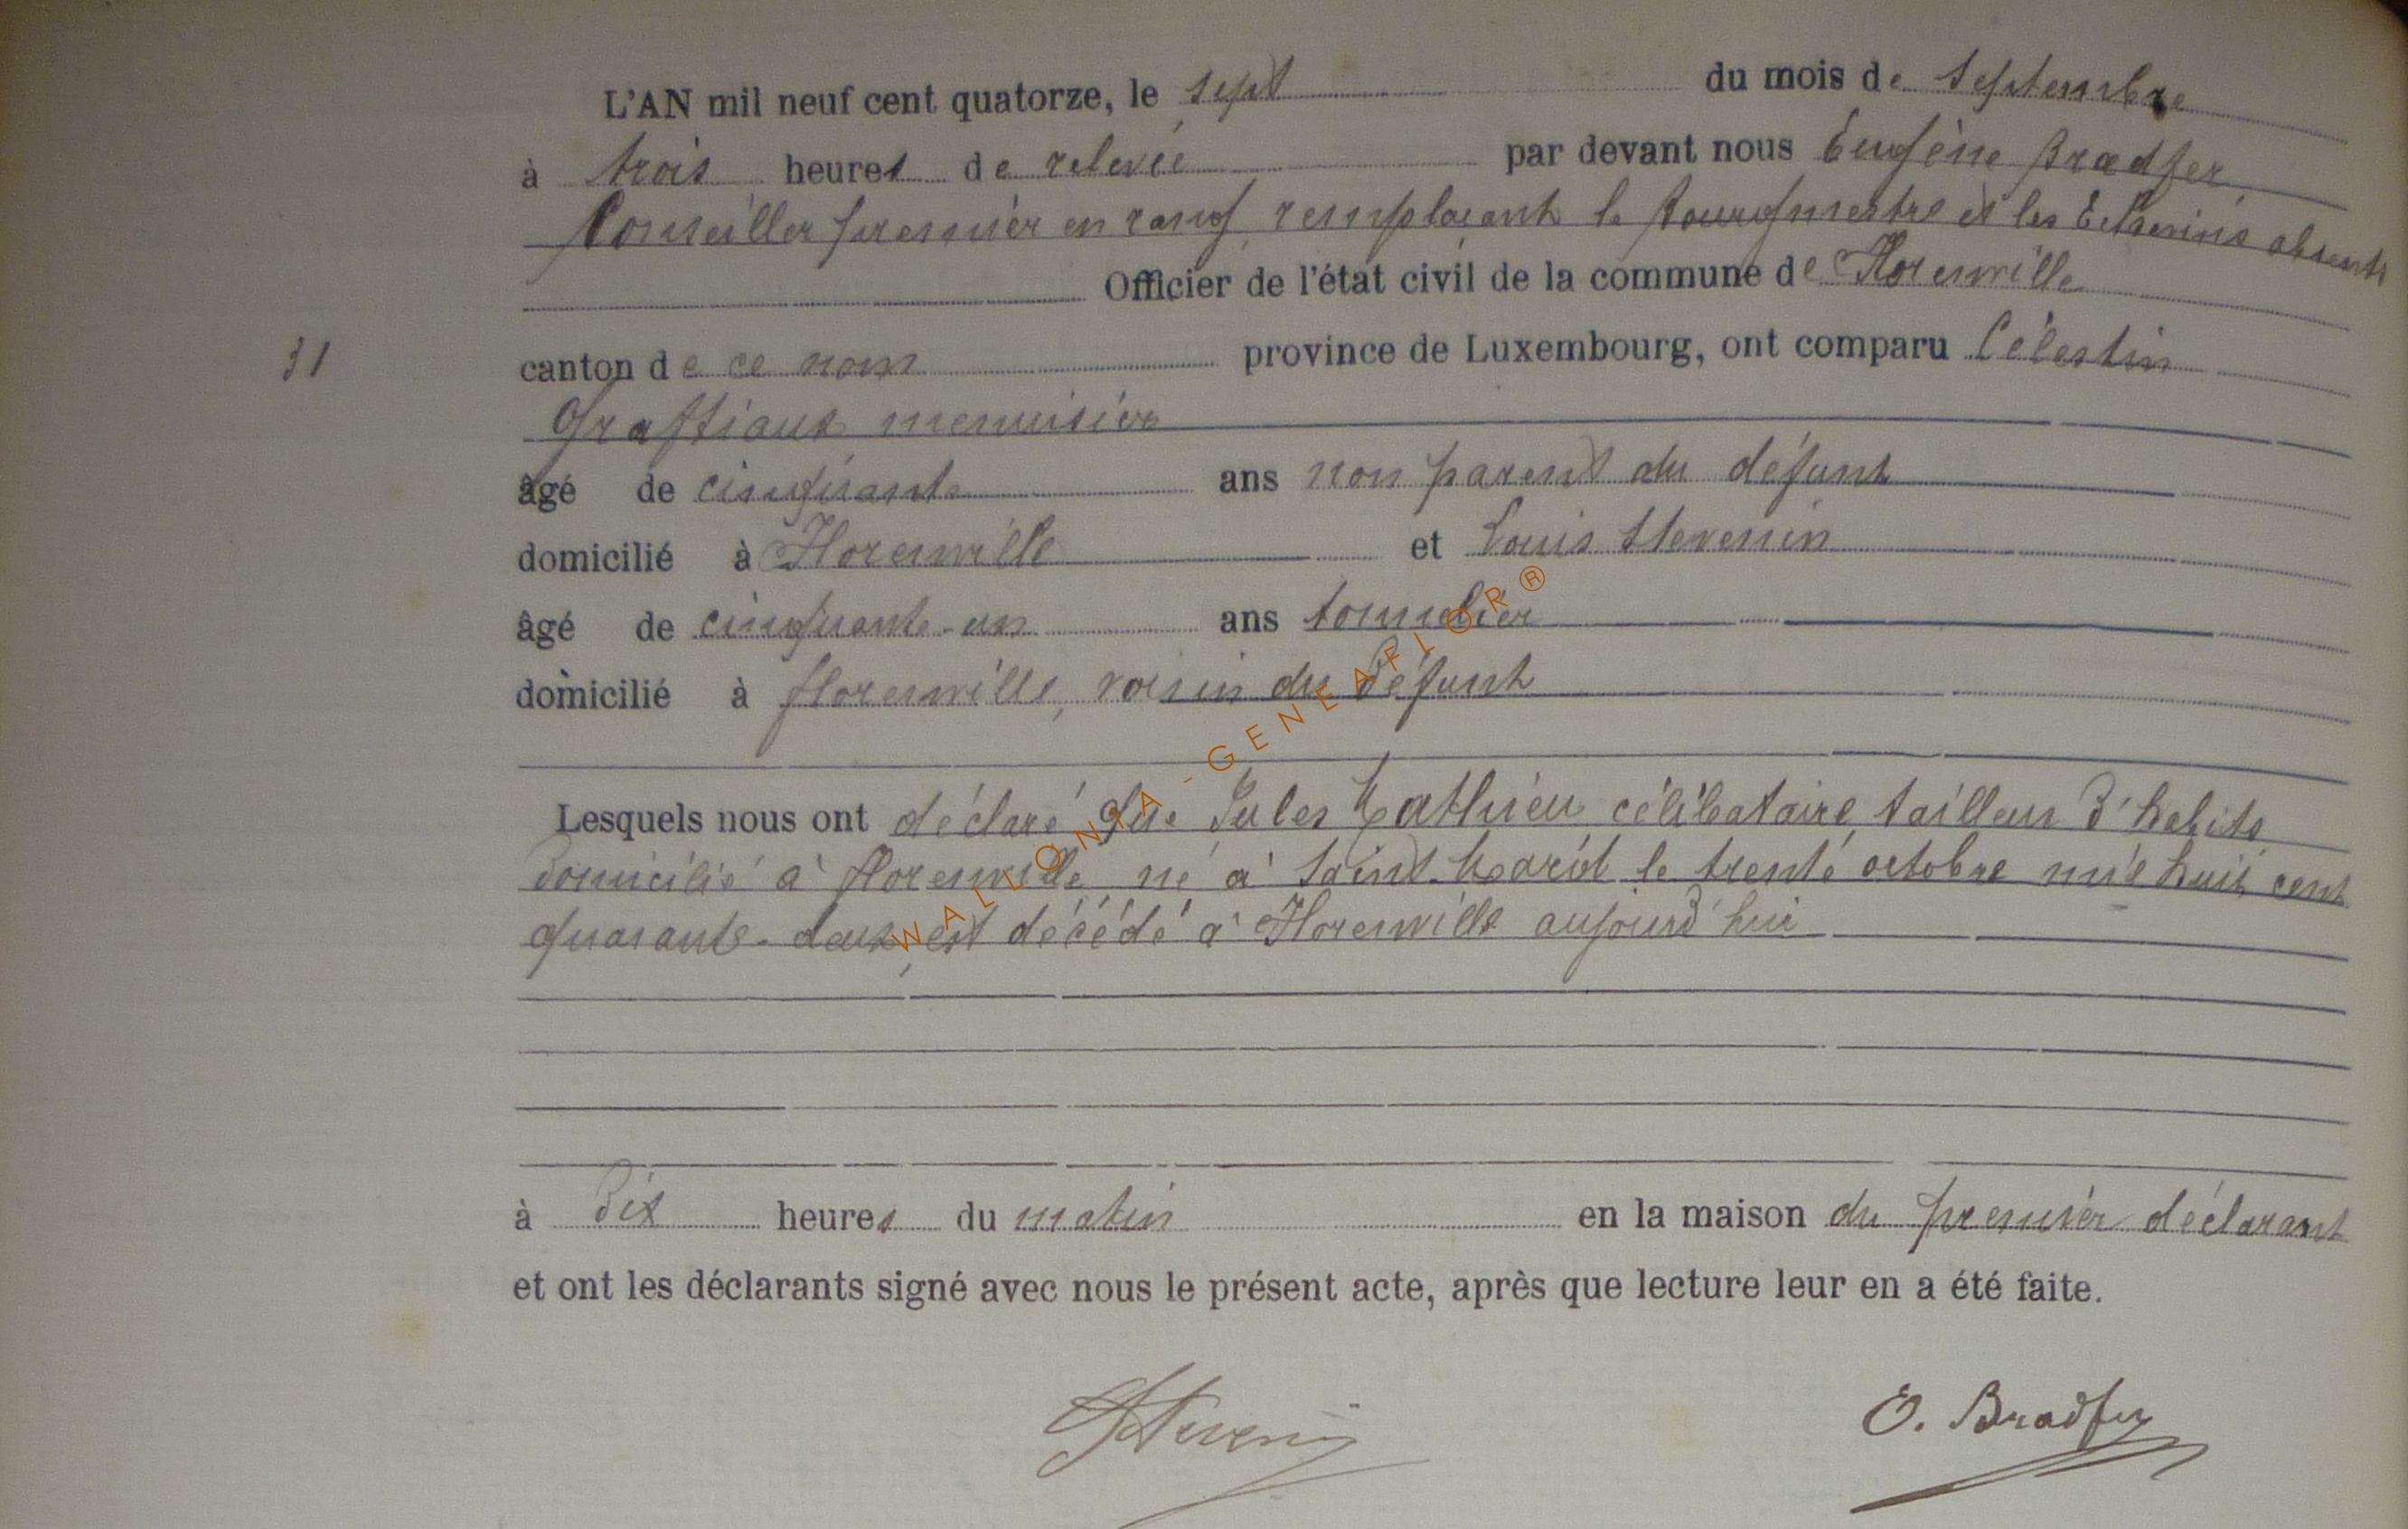 L'AN mil neuf cent quatorze, le sept du mois de Septembre
à trois heures de relevée par devant nous Eugène Bradfer,
Conseiller premier en rang, remplacant le Bourgmestre et les Echevins absents
Officier de l'état civil de la commune de Florenville
31
canton de ce nom province de Luxembourg, ont comparu Célestin
Graftiaux menuisier
âgé de cinquante ans non parent du défunt
domicilié à Florenville et Louis Stevenin
âgé de cinquante-un ans tonnelier
domicilié à florenville, voisin du défunt
Lesquels nous ont déclaré que Jules Mathieu célibataire, tailleur d'habits
domicilié à florenville, né à Saint-Mard le trente octobre mil huit cent
quarante-deux, est décédé à Florenville aujourd'hui
à dix heures du matin en la maison du premier déclarant
et ont les déclarants signé avec nous le présent acte, après que lecture leur en a été faite.
Stevenin E. Bradfer
WALLONIA-GENEAFLOR®